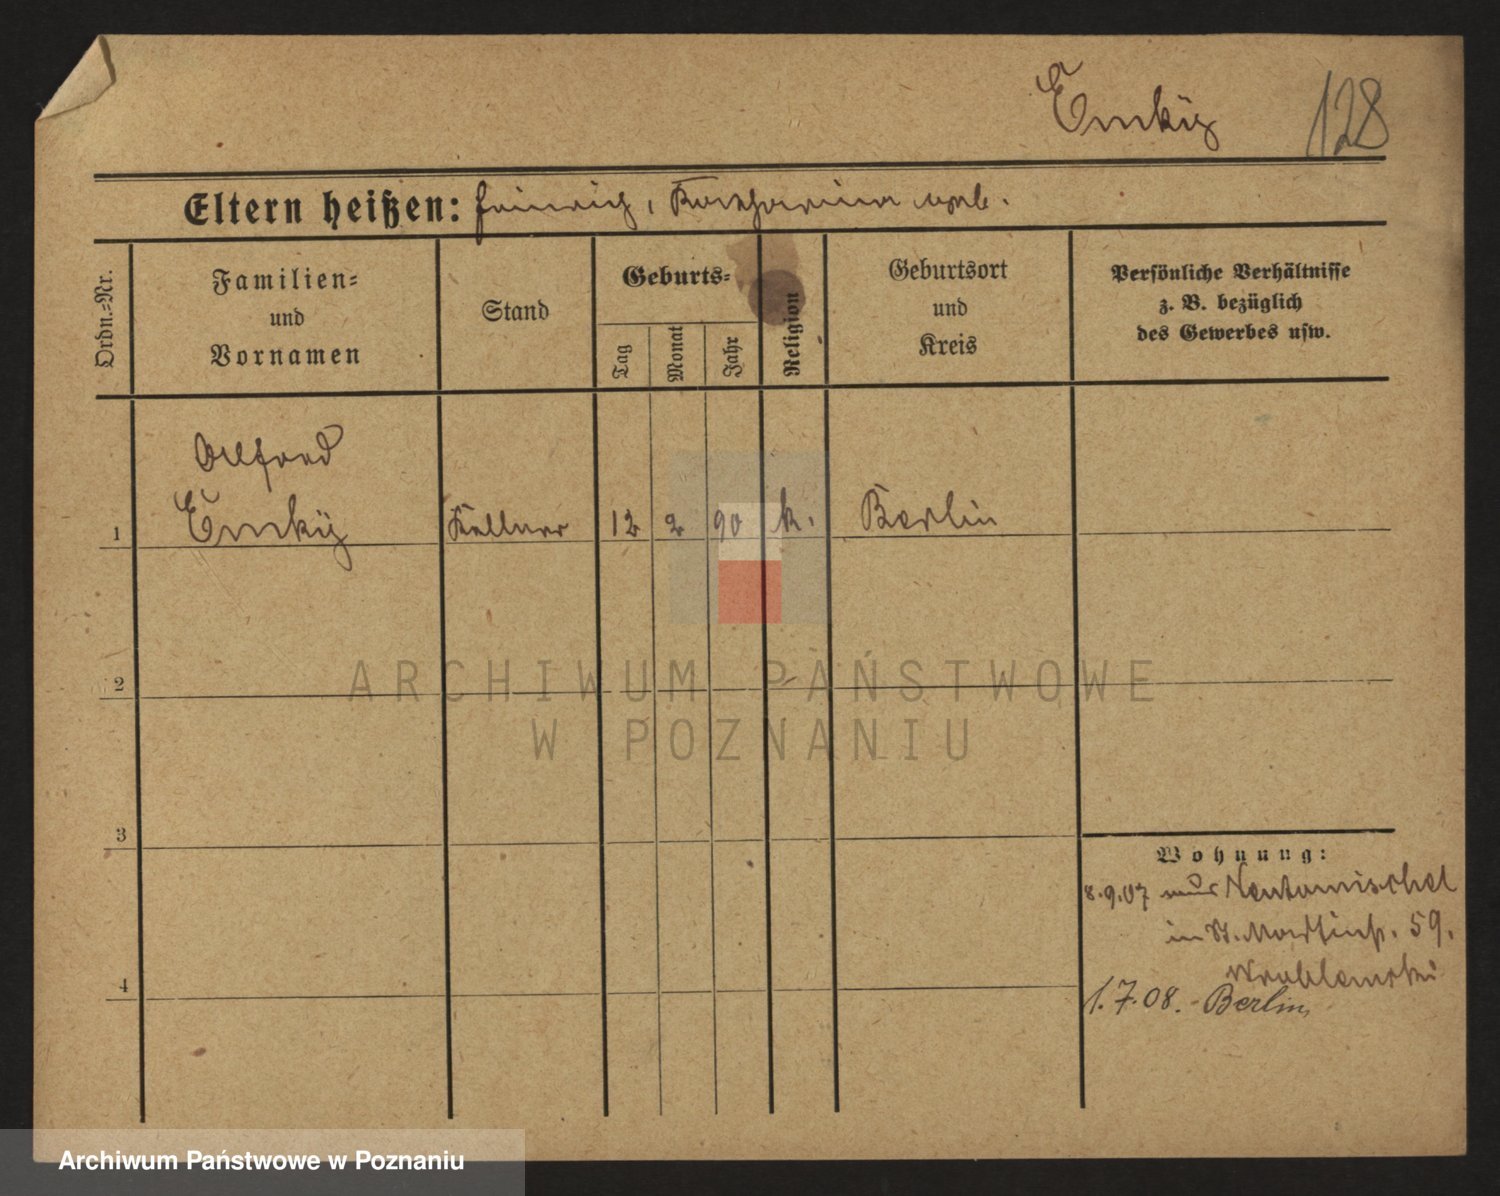 Emkÿ 128
Eltern heißen: Heinrich, Katharina geb.
Ordn.=Nr.
Familien=
und
Vornamen
Stand
Geburts=
Tag
Monat
Jahr
Religion
Geburtsort
und
Kreis
Persönliche Verhältnisse
z. B. bezüglich
des Gewerbes usw.
Alfred
1 Emkÿ Kellner 12 2 90 k. Berlin
2
3
4
Wohnung:
8.9.07 aus Neutomischel
in St. Martinstr. 59.
Wroblewski
1.7.08. - Berlin,
ARCHIWUM PAŃSTWOWE
W POZNANIU
Archiwum Państwowe w Poznaniu